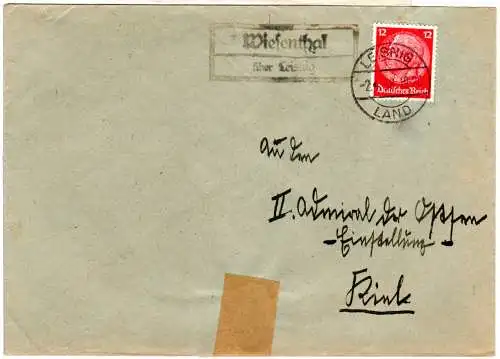 Wiesenthal
über Leisnig
12 12
Deutsches Reich
LEISNIG
LAND
An den
II. Admiral der Ostsee
- Einstellung -
Kiel